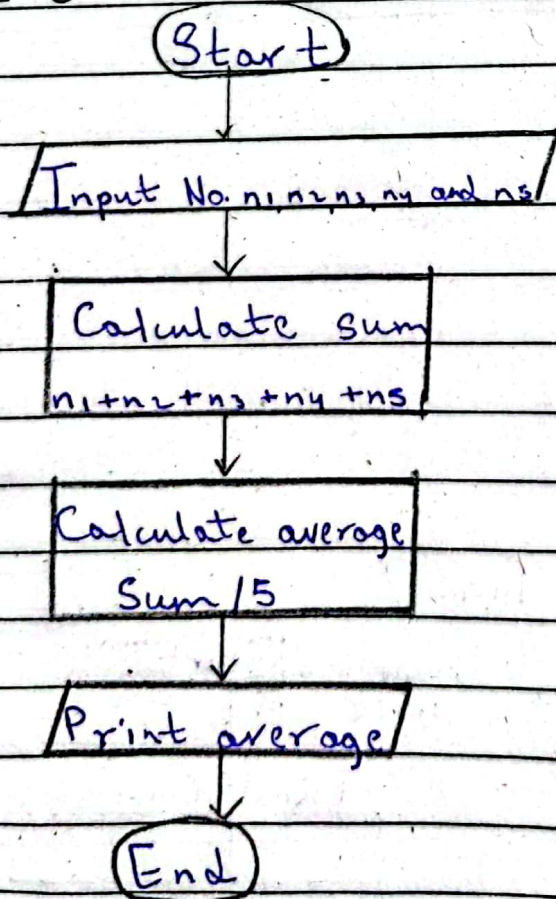 Start
Input No. n1, n2, n3, n4 and n5
Calculate sum
n1+n2+n3+n4+n5
Calculate average
Sum/5
Print average
End